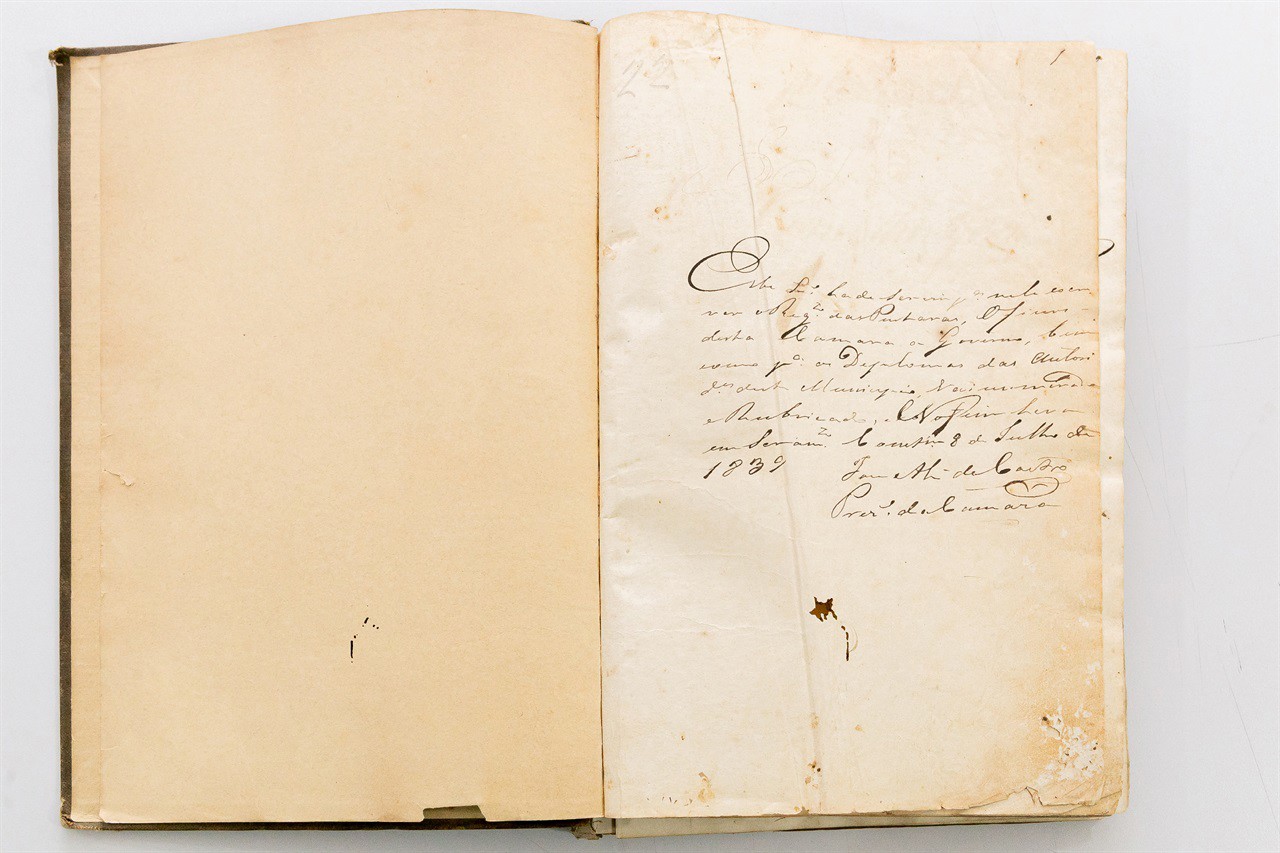 22
1
Este L.º ha de servir p.ª nele escre
ver o Reg.º das Portarias, Officios
desta Camara o Governo, bem
como p.ª os Diplomas das Autori
d.es deste Municipio, Vai numerado
e Rubricado, e No fim leva
em Seram.to 8 de Julho de
1839 de Castro
Prez.e da Camara